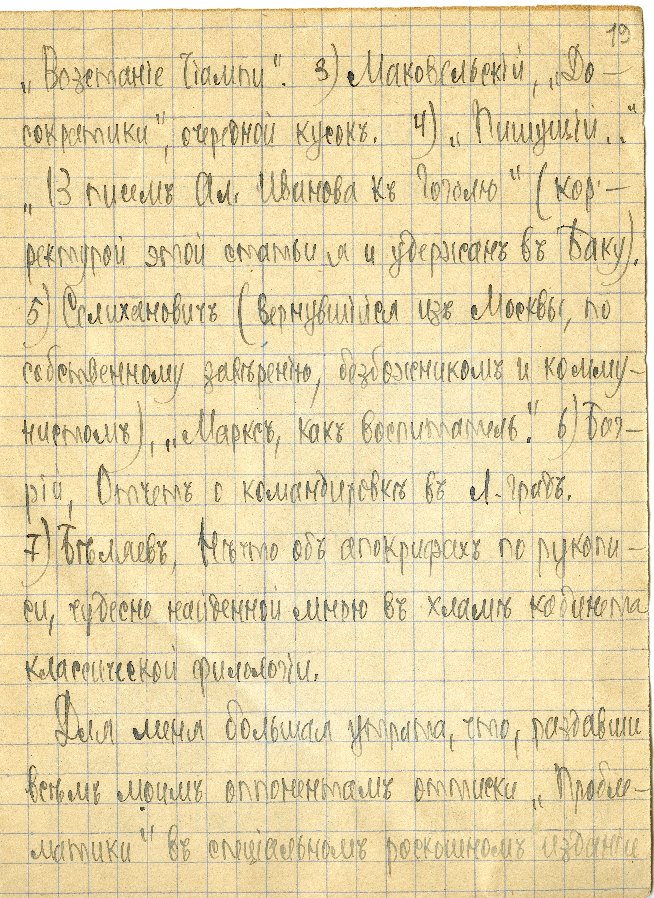 19
„Возстаніе Чіампи". 3) Маковельскій, „До-
сократики", очередной кусок. 4) „Пишущій.."
„13 писемъ Ал. Иванова къ Гоголю" (кор-
ректурой этой статьи я и удержанъ въ Баку).
5) Селихановичъ (вернувшійся изъ Москвы, по
собственному завѣренію, безбожникомъ и комму-
нистомъ), „Марксъ, какъ воспитатель". 6) Баг-
рій, Отчетъ о командировкѣ въ Л.-градъ.
7) Бѣляевъ, Нѣчто объ апокрифахъ по рукопи-
си, чудесно найденной мною въ хламѣ кабинета
классической филологіи.
Для меня большая утрата, что, раздавши
всѣмъ моимъ оппонентамъ оттиски „Пробле-
матики" въ спеціальномъ роскошномъ изданіи